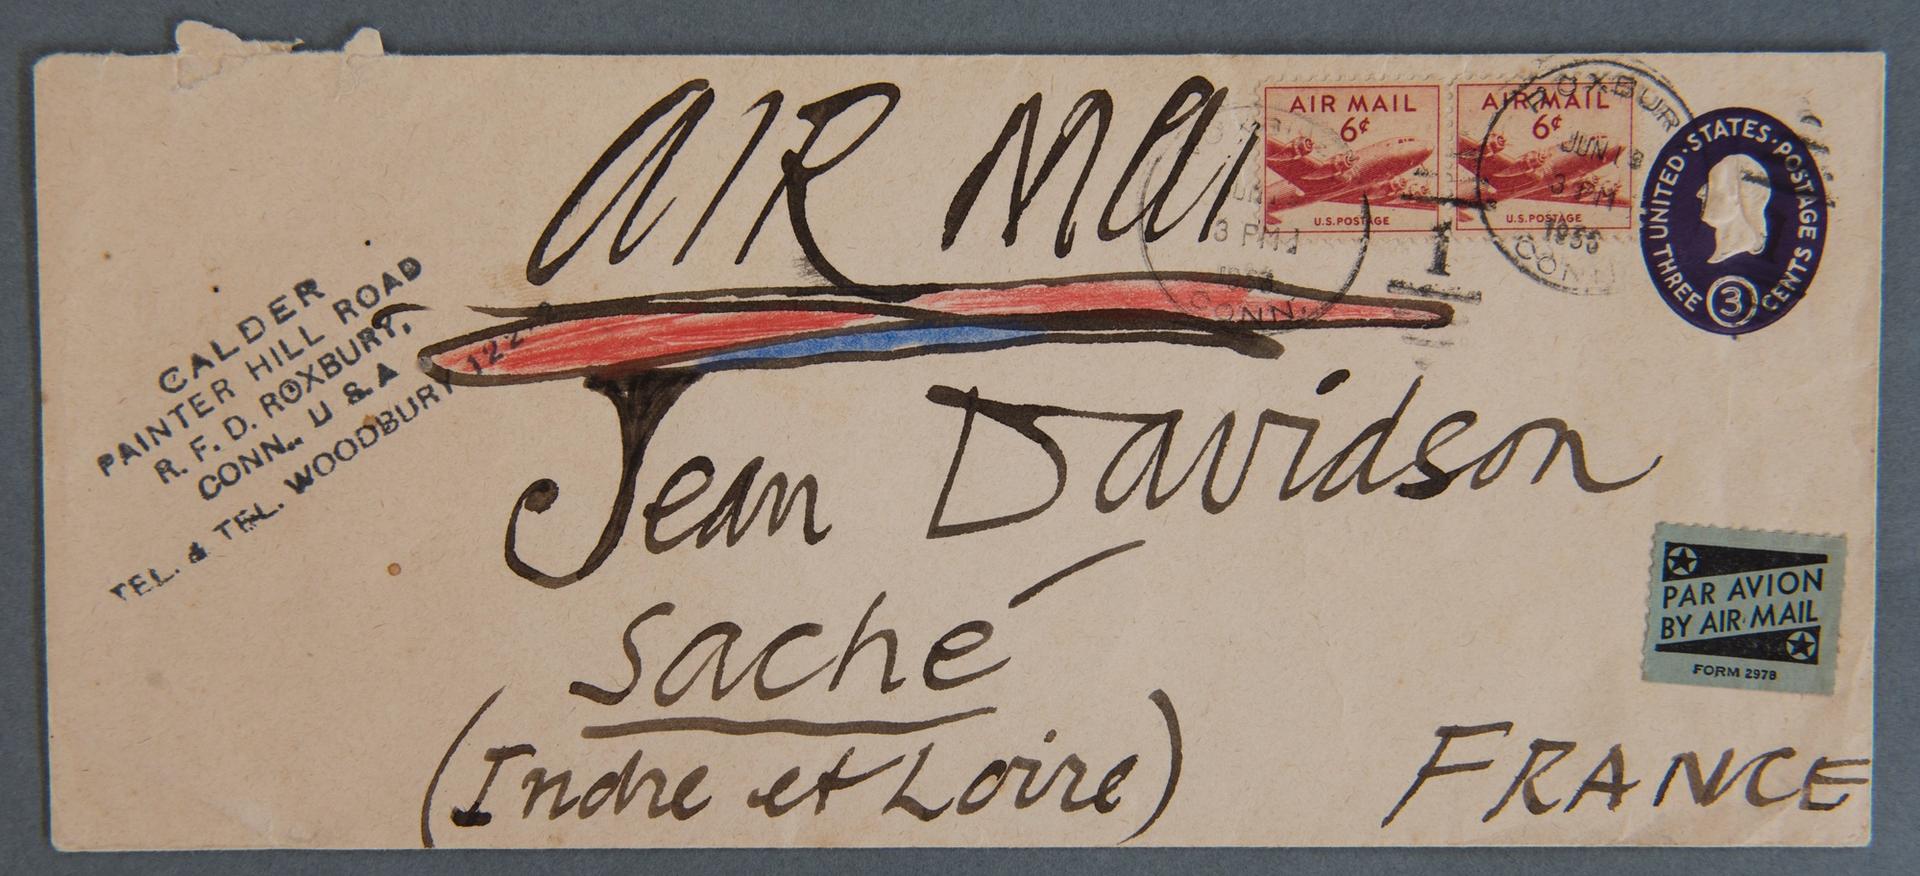 AIR MAI
AIR MAIL
6¢
U.S. POSTAGE
AIR MAIL
6¢
U.S. POSTAGE
ROXBUR
JUN 1
3 PM
CONN.
3 PM
CONN.
1
UNITED · STATES · POSTAGE
THREE 3 CENTS
CALDER
PAINTER HILL ROAD
R. F. D. ROXBURY,
CONN., U S A
TEL. & TEL. WOODBURY 122
Jean Davidson
Saché
(Indre et Loire)
PAR AVION
BY AIR MAIL
FORM 2978
FRANCE